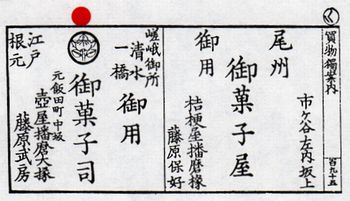 買物獨案内
百九十五
市ケ谷左内坂上
尾州
御用
御菓子屋
桔梗屋播磨掾
藤原保好
嵯峨御所
清水
一橋
御用
御菓子司
元飯田町中坂
壺屋播磨大掾
藤原武房
江戸
根元